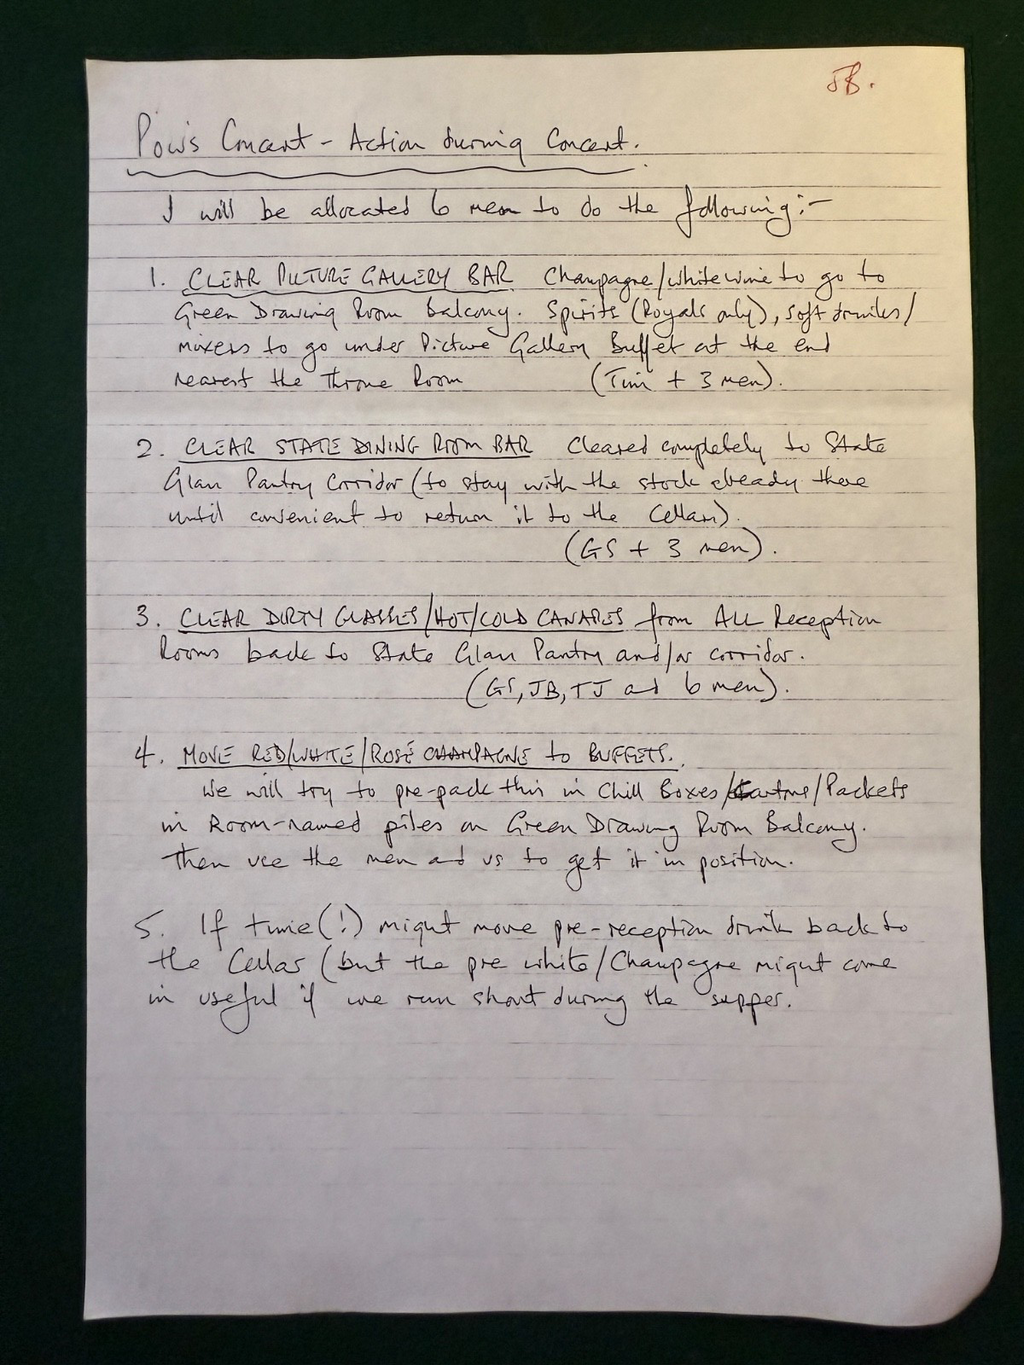 JB.
PoW's Concert - Action during Concert.
I will be allocated 6 men to do the following:-
1. CLEAR PICTURE GALLERY BAR Champagne/White wine to go to
Green Drawing Room balcony. Spirits (Royals only), soft drinks/
mixers to go under Picture Gallery Buffet at the end
nearest the Throne Room (Tim + 3 men).
2. CLEAR STATE DINING ROOM BAR Cleared completely to State
Glass Pantry Corridor (to stay with the stock already there
until convenient to return it to the Cellars).
(GS + 3 men).
3. CLEAR DIRTY GLASSES/HOT/COLD CANAPES from ALL Reception
Rooms back to State Glass Pantry and/or corridor.
(GS, JB, TJ and 6 men).
4. MOVE RED/WHITE/ROSÉ CHAMPAGNE to BUFFETS.
We will try to pre-pack this in Chill Boxes/Cartons/Packets
in Room-named piles on Green Drawing Room Balcony.
Then use the men and us to get it in position.
5. If time(!) might move pre-reception drink back to
the Cellar (but the pre white/Champagne might come
in useful if we run short during the supper.